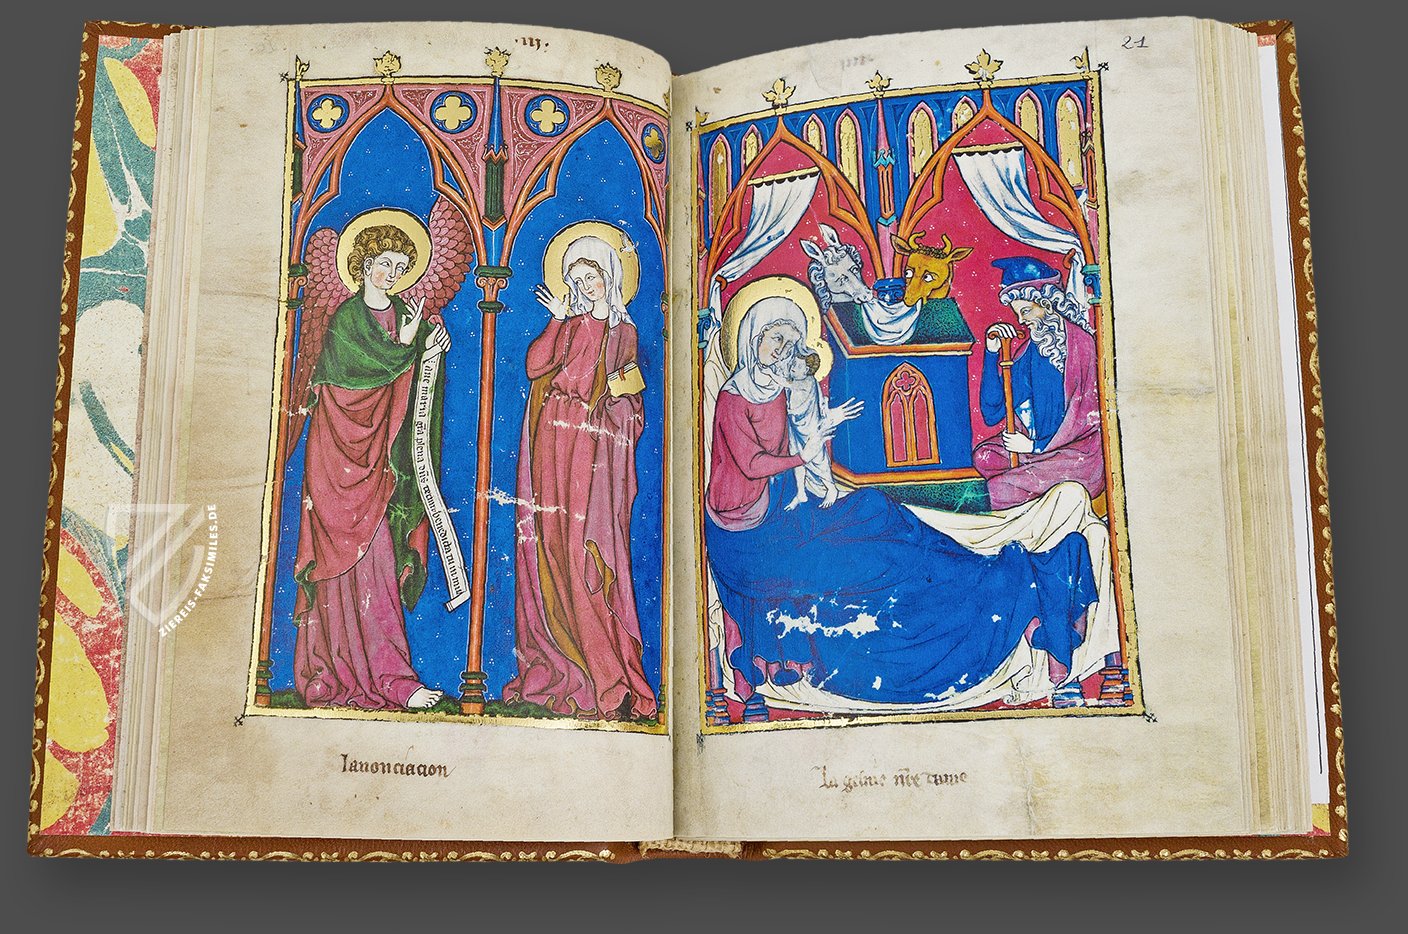 ·III·
21
aue maria gra plena dns tecum benedicta tu in mul
lanonciacion
La gesine nre dame
ZIEREIS-FAKSIMILES.DE